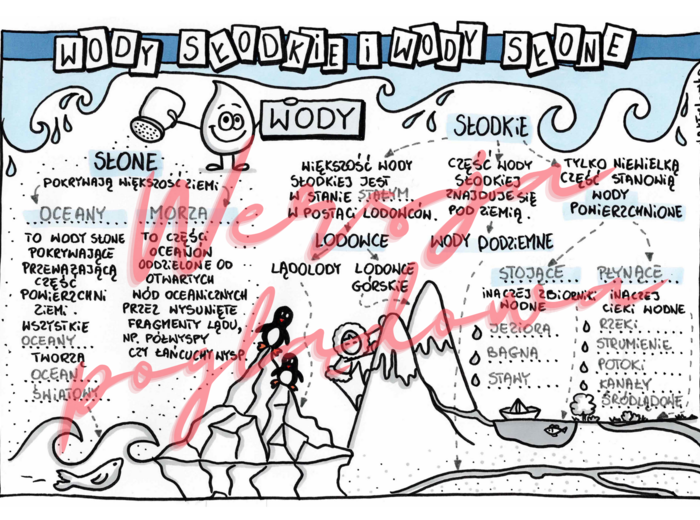 WODY SŁODKIE I WODY SŁONE
WODY
SŁONE
POKRYWAJĄ WIĘKSZOŚĆ ZIEMI
OCEANY
TO WODY SŁONE
POKRYWAJĄCE
PRZEWAŻAJĄCĄ
CZĘŚĆ
POWIERZCHNI
ZIEMI.
WSZYSTKIE
OCEANY
TWORZĄ
OCEAN
ŚWIATOWY
MORZA
TO CZĘŚCI
OCEANÓW
ODDZIELONE OD
OTWARTYCH
WÓD OCEANICZNYCH
PRZEZ WYSUNIĘTE
FRAGMENTY LĄDU,
NP. PÓŁWYSPY
CZY ŁAŃCUCHY WYSP.
SŁODKIE
WIĘKSZOŚĆ WODY
SŁODKIEJ JEST
W STANIE STAŁYM
W POSTACI LODOWCÓW.
LODOWCE
LĄDOLODY
LODOWCE
GÓRSKIE
CZĘŚĆ WODY
SŁODKIEJ
ZNAJDUJE SIĘ
POD ZIEMIĄ.
WODY PODZIEMNE
TYLKO NIEWIELKĄ
CZĘŚĆ STANOWIĄ
WODY
POWIERZCHNIOWE
STOJĄCE
INACZEJ ZBIORNIKI
WODNE
JEZIORA
BAGNA
STAWY
PŁYNĄCE
INACZEJ
CIEKI WODNE
RZEKI
STRUMIENIE
POTOKI
KANAŁY
ŚRÓDLĄDOWE
Wersja
poglądowa